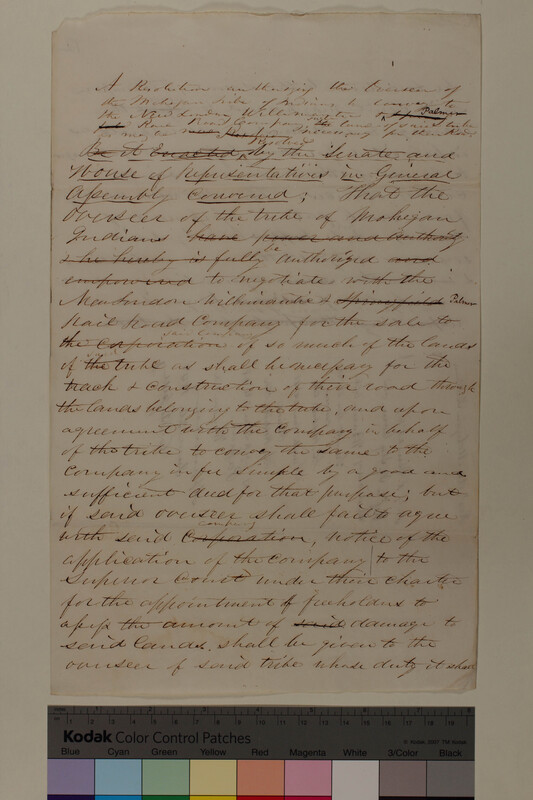 A Resolution authorizing the Overseer of
the Mohegan tribe of Indians to convey to
the New London Willimantic & Palmer
Rail Road Company the lands of said tribe
necessary for their Road
Be it Enacted Resolved by the Senate and
House of Representatives in General
Assembly Convened; That the
Overseer of the tribe of Mohegan
Indians have power and authority
& he hereby is fully be authorized and
empowered to negotiate with the
New London Willimantic & Springfield Palmer
Rail Road Company for the sale to
said company
the corporation of so much of the lands
of the tribe as shall be necessary for the
track & construction of their road through
the lands belonging to the tribe, and upon
agreement with the Company in behalf
of the tribe to convey the same to the
Company in fee simple by a good and
sufficient deed for that purpose; but
if said overseer shall fail to agree
company
with said Corporation, notice of the
application of the Company to the
Superior Court under their charter
for the appointment of freeholders to
appr the amount of said damage to
said lands, shall be given to the
overseer of said tribe whose duty it shall
Kodak Color Control Patches
© Kodak, 2007 TM: Kodak
Blue Cyan Green Yellow Red Magenta White 3/Color Black